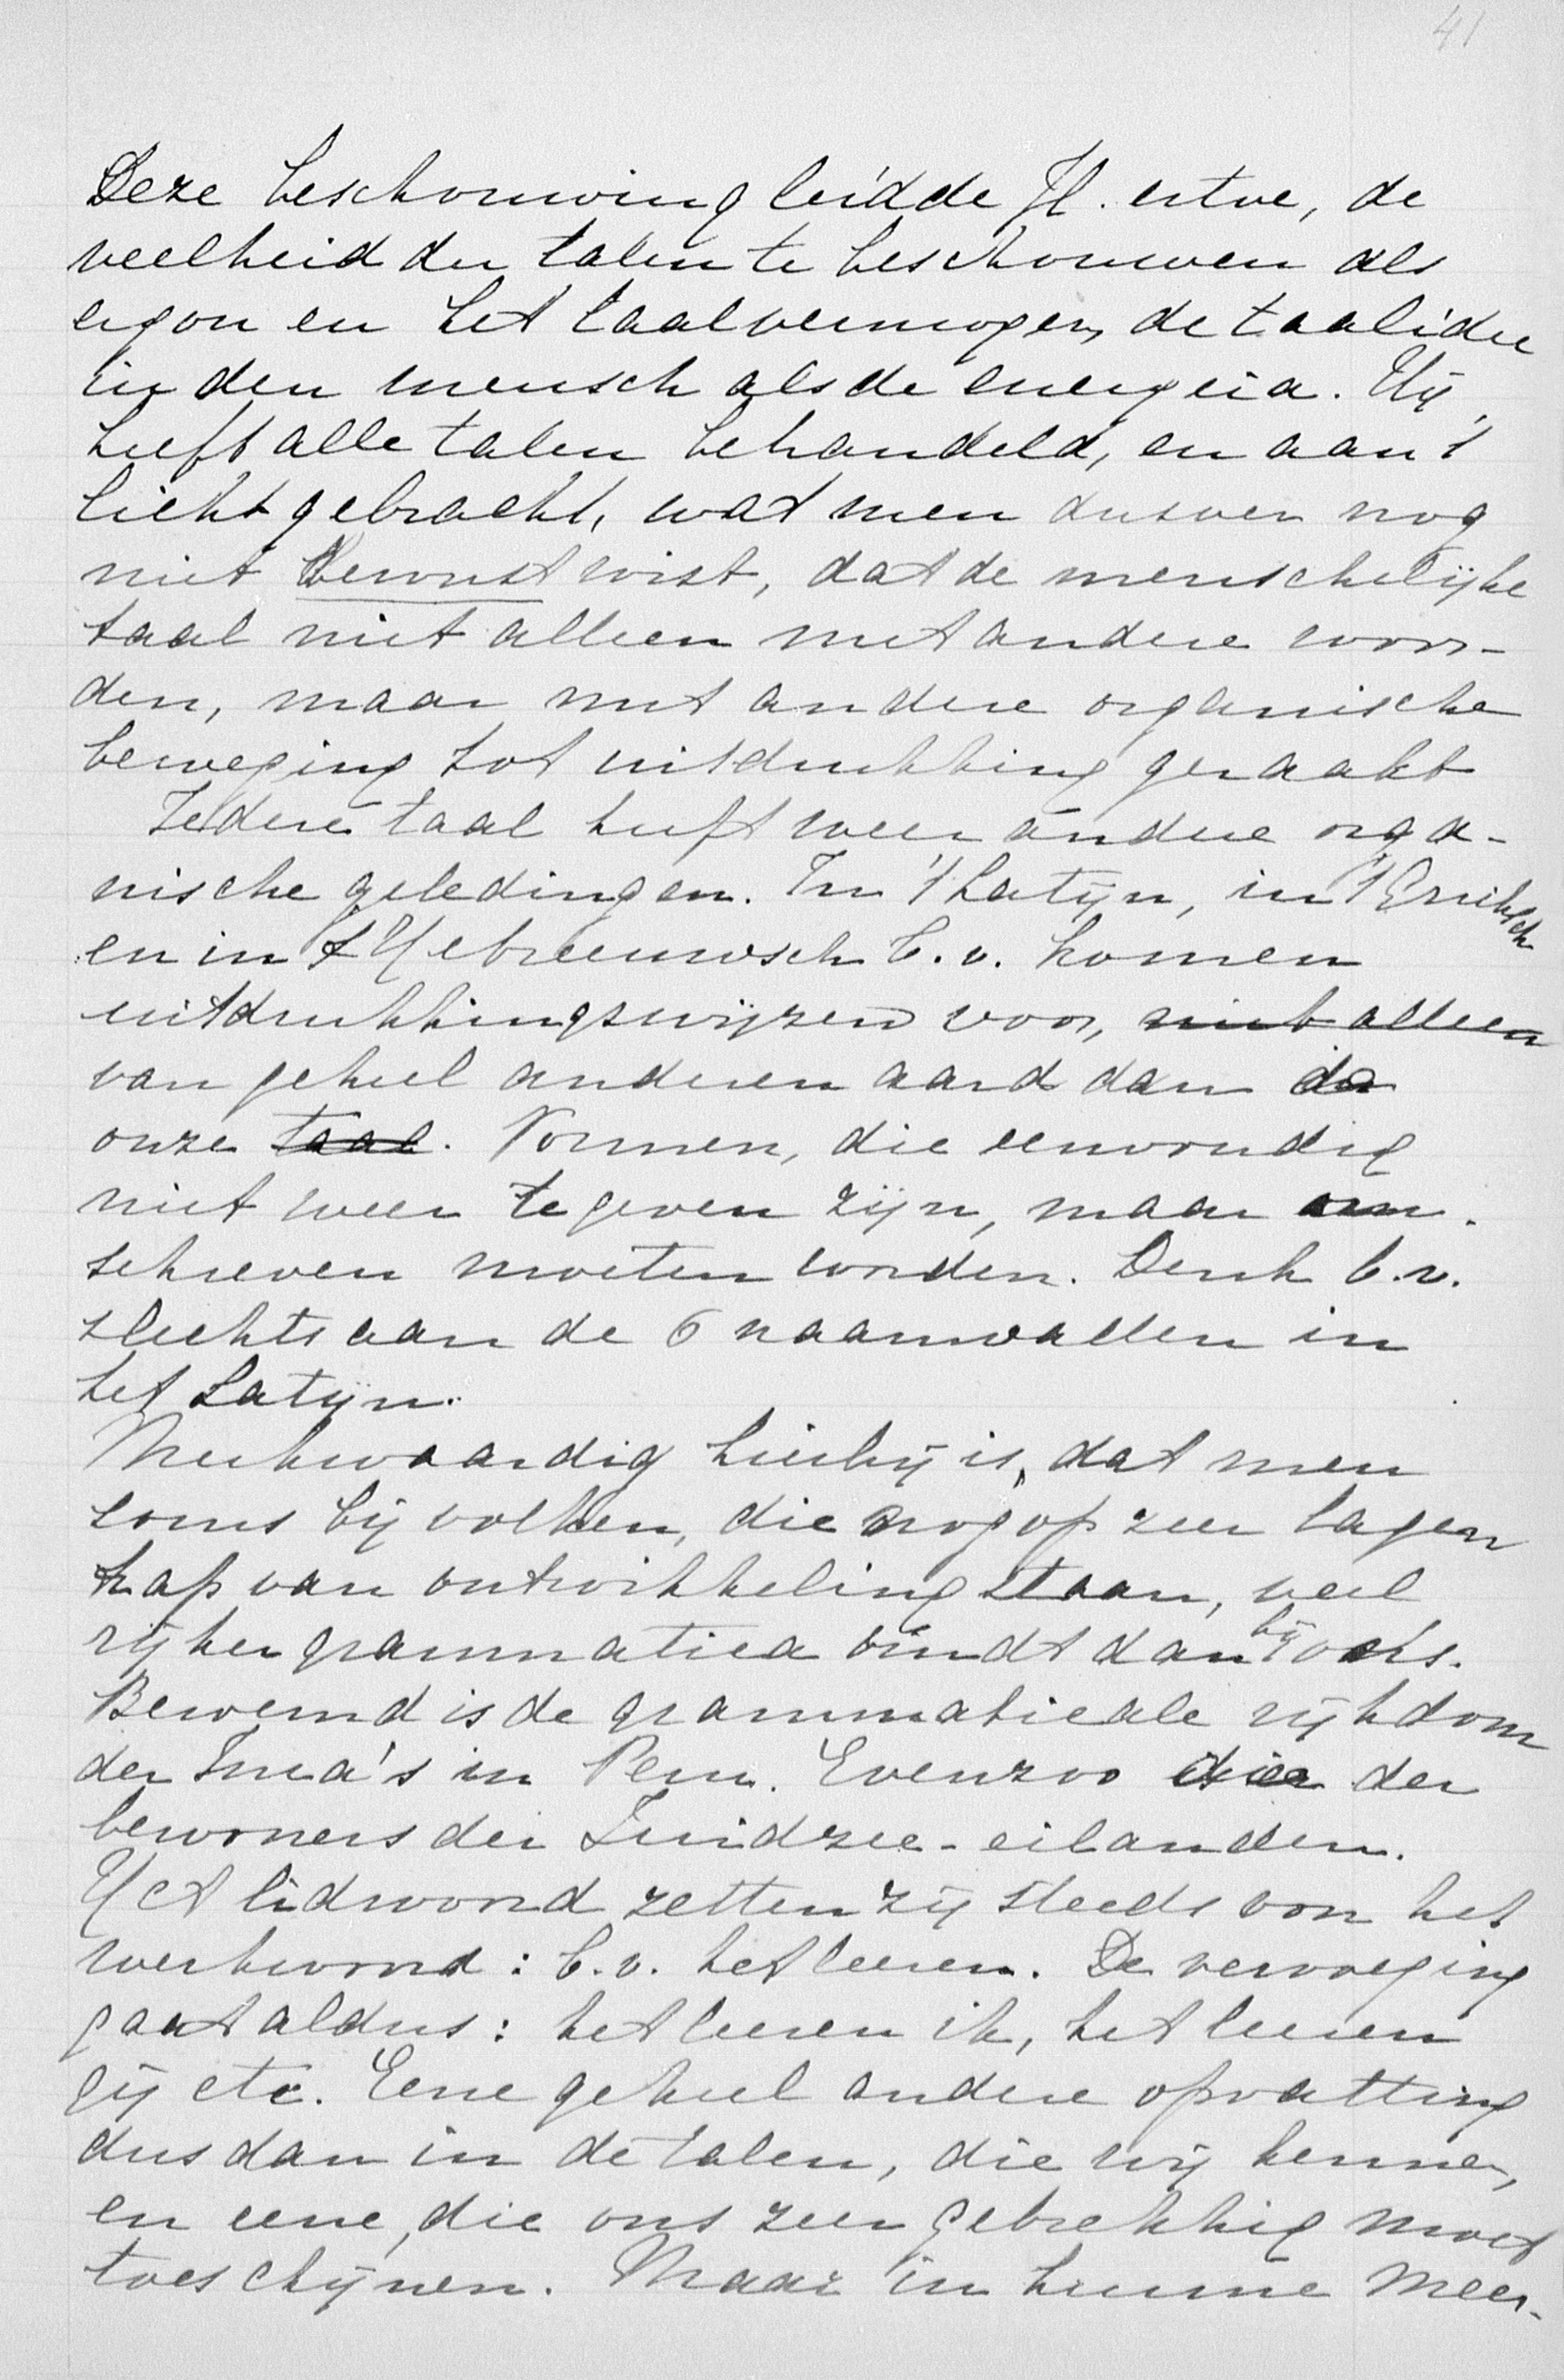 41
Deze beschouwing leidde H. ertoe, de
veelheid der talen te beschouwen als
ergon en het taalvermogen, de taalidee
in den mensch als de energeia. Hij
heeft alle talen behandeld, en aan 't
licht gebracht, wat men dusver nog
niet bewust wist, dat de menschelijke
taal niet alleen met andere woor-
den, maar met andere organische
beweging tot uitdrukking geraakt
Iedere taal heeft weer andere orga-
nische geledingen. In 't Latijn, in 't Grieksch
en in 't Hebreeuwsch b.v. komen
uitdrukkingswijzen voor, niet alleen
van geheel anderen aard dan de
onze taal. Vormen, die eenvoudig
niet weer te geven zijn, maar om-
schreven moeten worden. Denk b.v.
slechts aan de 6 naamvallen in
het Latijn.
Merkwaardig hierbij is, dat men
soms bij volken, die nog op zeer lagen
trap van ontwikkeling staan, veel
rijker grammatica vindt dan bij ons.
Beroemd is de grammaticale rijkdom
der Inca's in Peru. Evenzoo die der
bewoners der Zuidzee-eilanden.
Het lidwoord zetten zij steeds voor het
werkwoord: b.v. het leeren. De vervoeging
gaat aldus: het leeren ik, het leeren
gij etc. Eene geheel andere opvatting
dus dan in de talen, die wij kennen,
en eene, die ons zeer gebrekkig moet
toeschijnen. Maar in hunne meer-